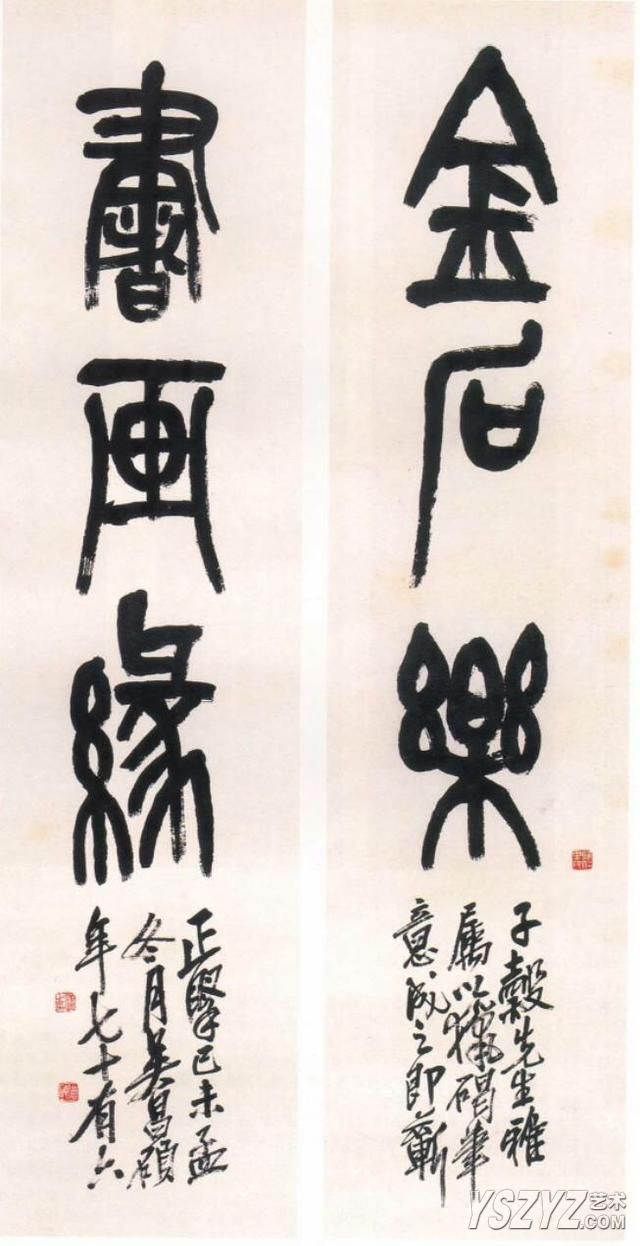 金石樂
子穀先生雅
屬以獵碣筆
意成之即蘄
書画緣
正擘己未孟
冬月吳昌碩
年七十有六
YSZYZ艺术
.COM